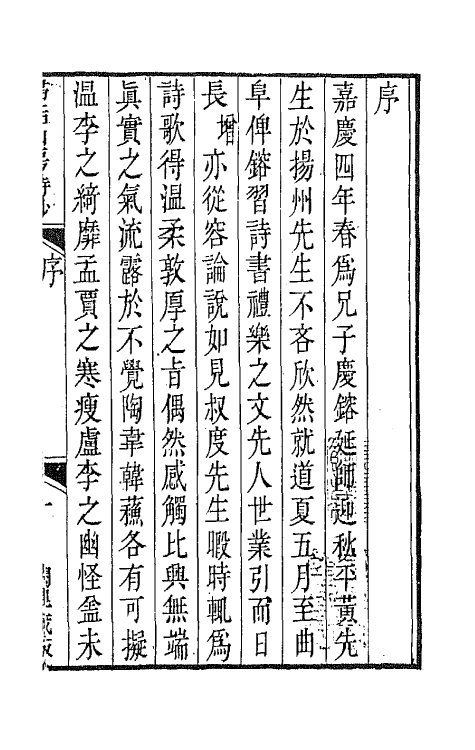 序
嘉慶四年春爲兄子慶鎔延師迎秋平黃先
生於揚州先生不吝欣然就道夏五月至曲
阜俾鎔習詩書禮樂之文先人世業引而日
長增亦從容論說如見叔度先生暇時輒爲
詩歌得溫柔敦厚之旨偶然感觸比興無端
眞實之氣流露於不覺陶韋韓蘓各有可擬
温李之綺靡孟賈之寒瘦盧李之幽怪益未
序
一